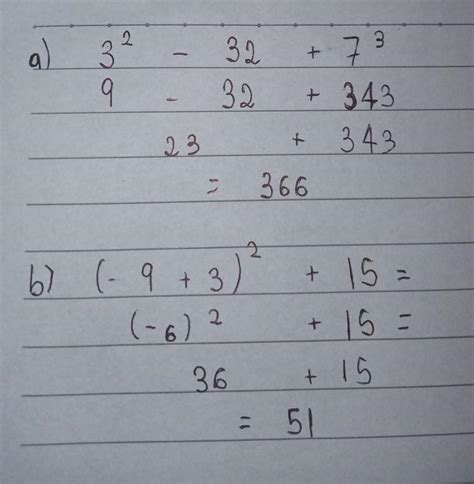 a) 3² - 32 + 7³
9 - 32 + 343
23 + 343
= 366
b) (- 9 + 3)² + 15 =
(-6)² + 15 =
36 + 15
= 51